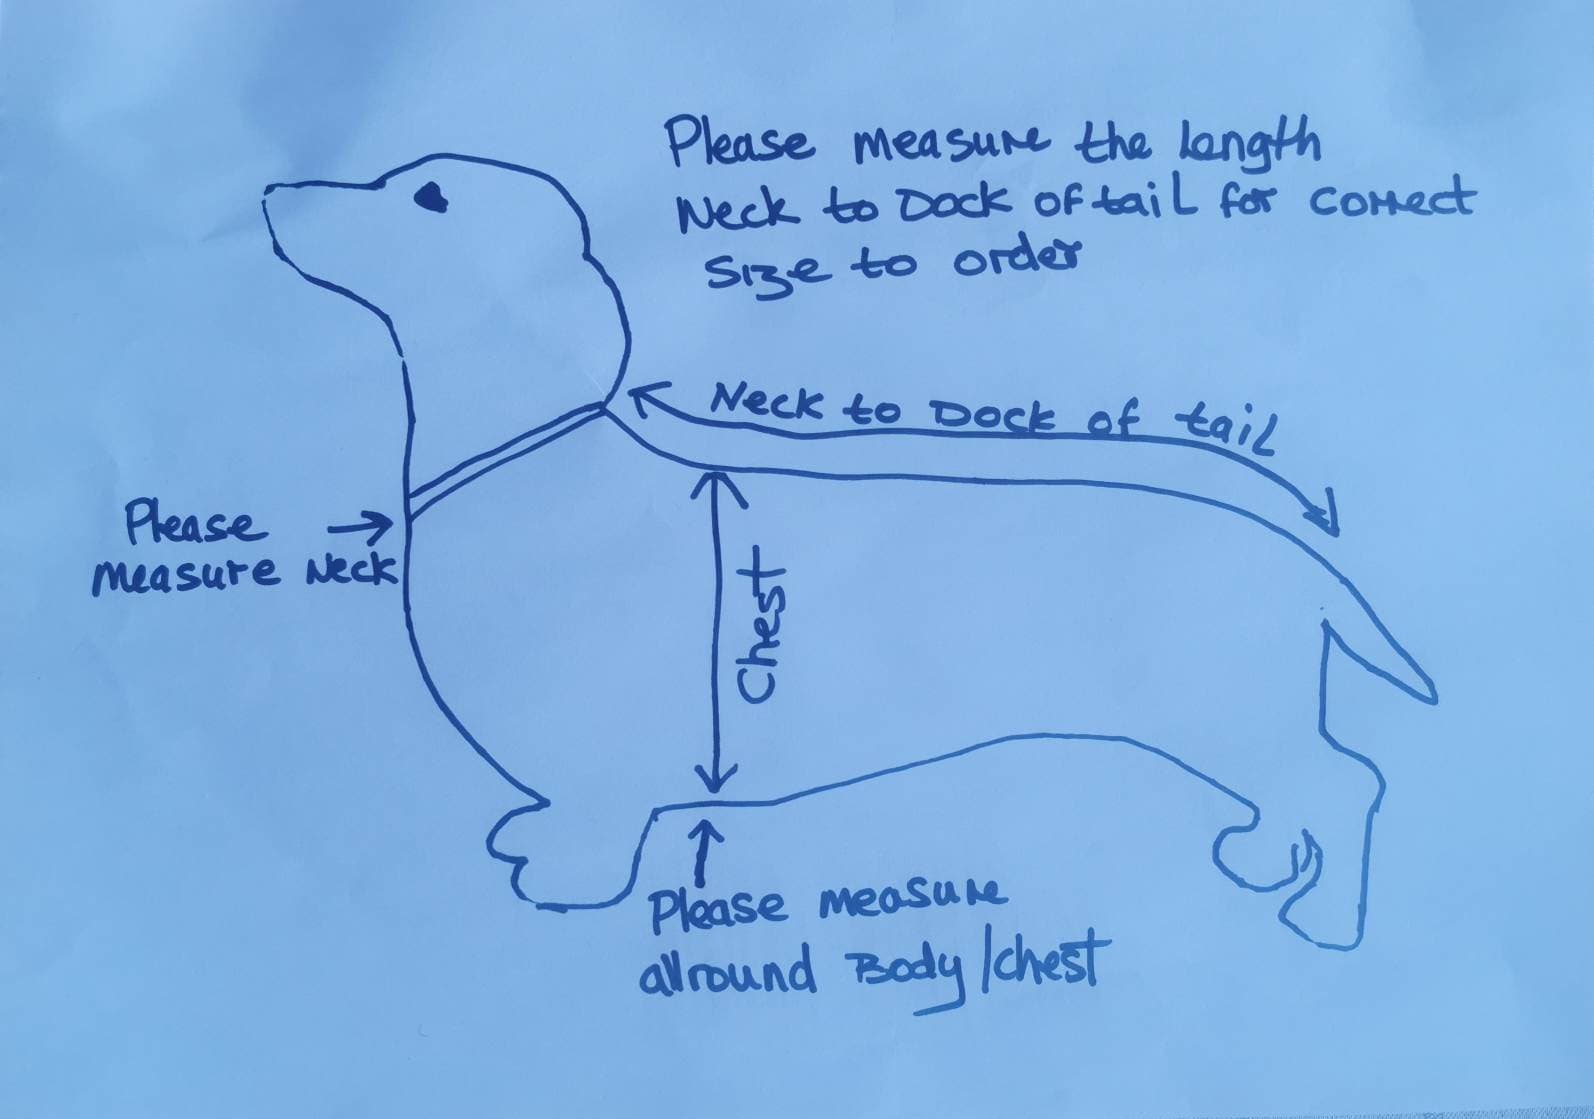 Please measure the length
Neck to Dock of tail for correct
size to order
Neck to Dock of tail
Please
measure Neck
Chest
Please measure
allround Body/chest